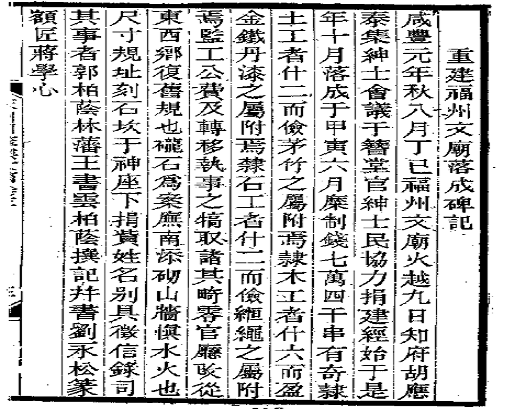 重建福州文廟落成碑記
咸豐元年秋八月丁巳福州文廟火越九日知府胡應
泰集紳士會議于簪堂官紳士民協力捐建經始于是
年十月落成于甲寅六月糜制錢七萬四千串有奇隸
土工者什二而儉茅竹之屬附焉隸木工者什六而盈
金鐵丹漆之屬附焉隸石工者什二而儉絙繩之屬附
焉監工公費及轉移執事之犒取諸其畸零官廳改從
東西鄉復舊規也礲石為案廡南添砌山牆慎水火也
尺寸規址刻石坎于神座下捐貲姓名別具徵信錄司
其事者郭柏蔭林藩王書雲柏蔭撰記并書劉永松篆
額匠蔣學心